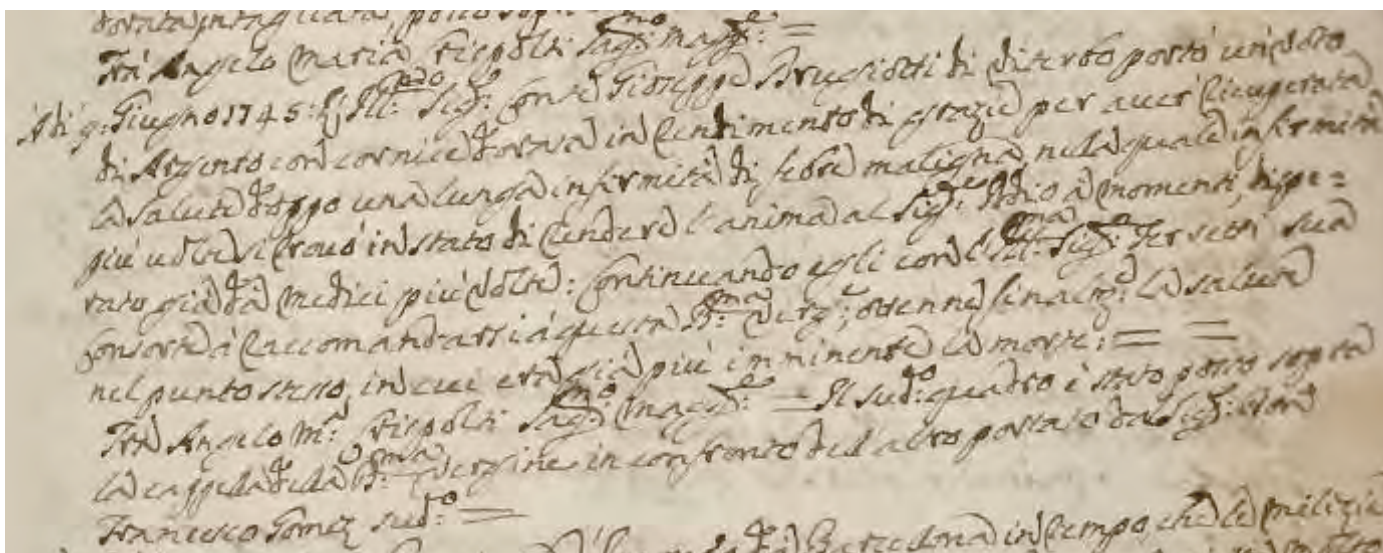 dorata, intagliata, posto sopra
Frà Angelo Maria Fiepolti Sag:no Magg:e =
Adi 9: Giugno 1745: L'Ill:mo Sig: Conte Gioseppe Brugiotti di Viterbo portò un Voto
di Argento con cornice dorata in rendimento di grazie per aver ricuperata
la salute doppo una lunga infirmità di febre maligna, nella quale infirmità
più volte si trovò in stato di rendere l'anima al Sig:re Iddio à momenti, dispe=
rato già dà Medici più volte: Continuando egli con l'Ill:ma Sig:a sua
Consorte à raccomandarsi à questa B:ma Verg:e, ottenne finalm:e la salute
nel punto stesso, in cui era già più imminente la morte: = =
Frà Angelo M:a Fiepolti Sag:no Magg:e = Il sud:to quadro è stato posto sopra
la cappella della B:ma Vergine in confronto del'altro portato da Sig:
Francesco Gomez sud:to =
in tempo che la milizia